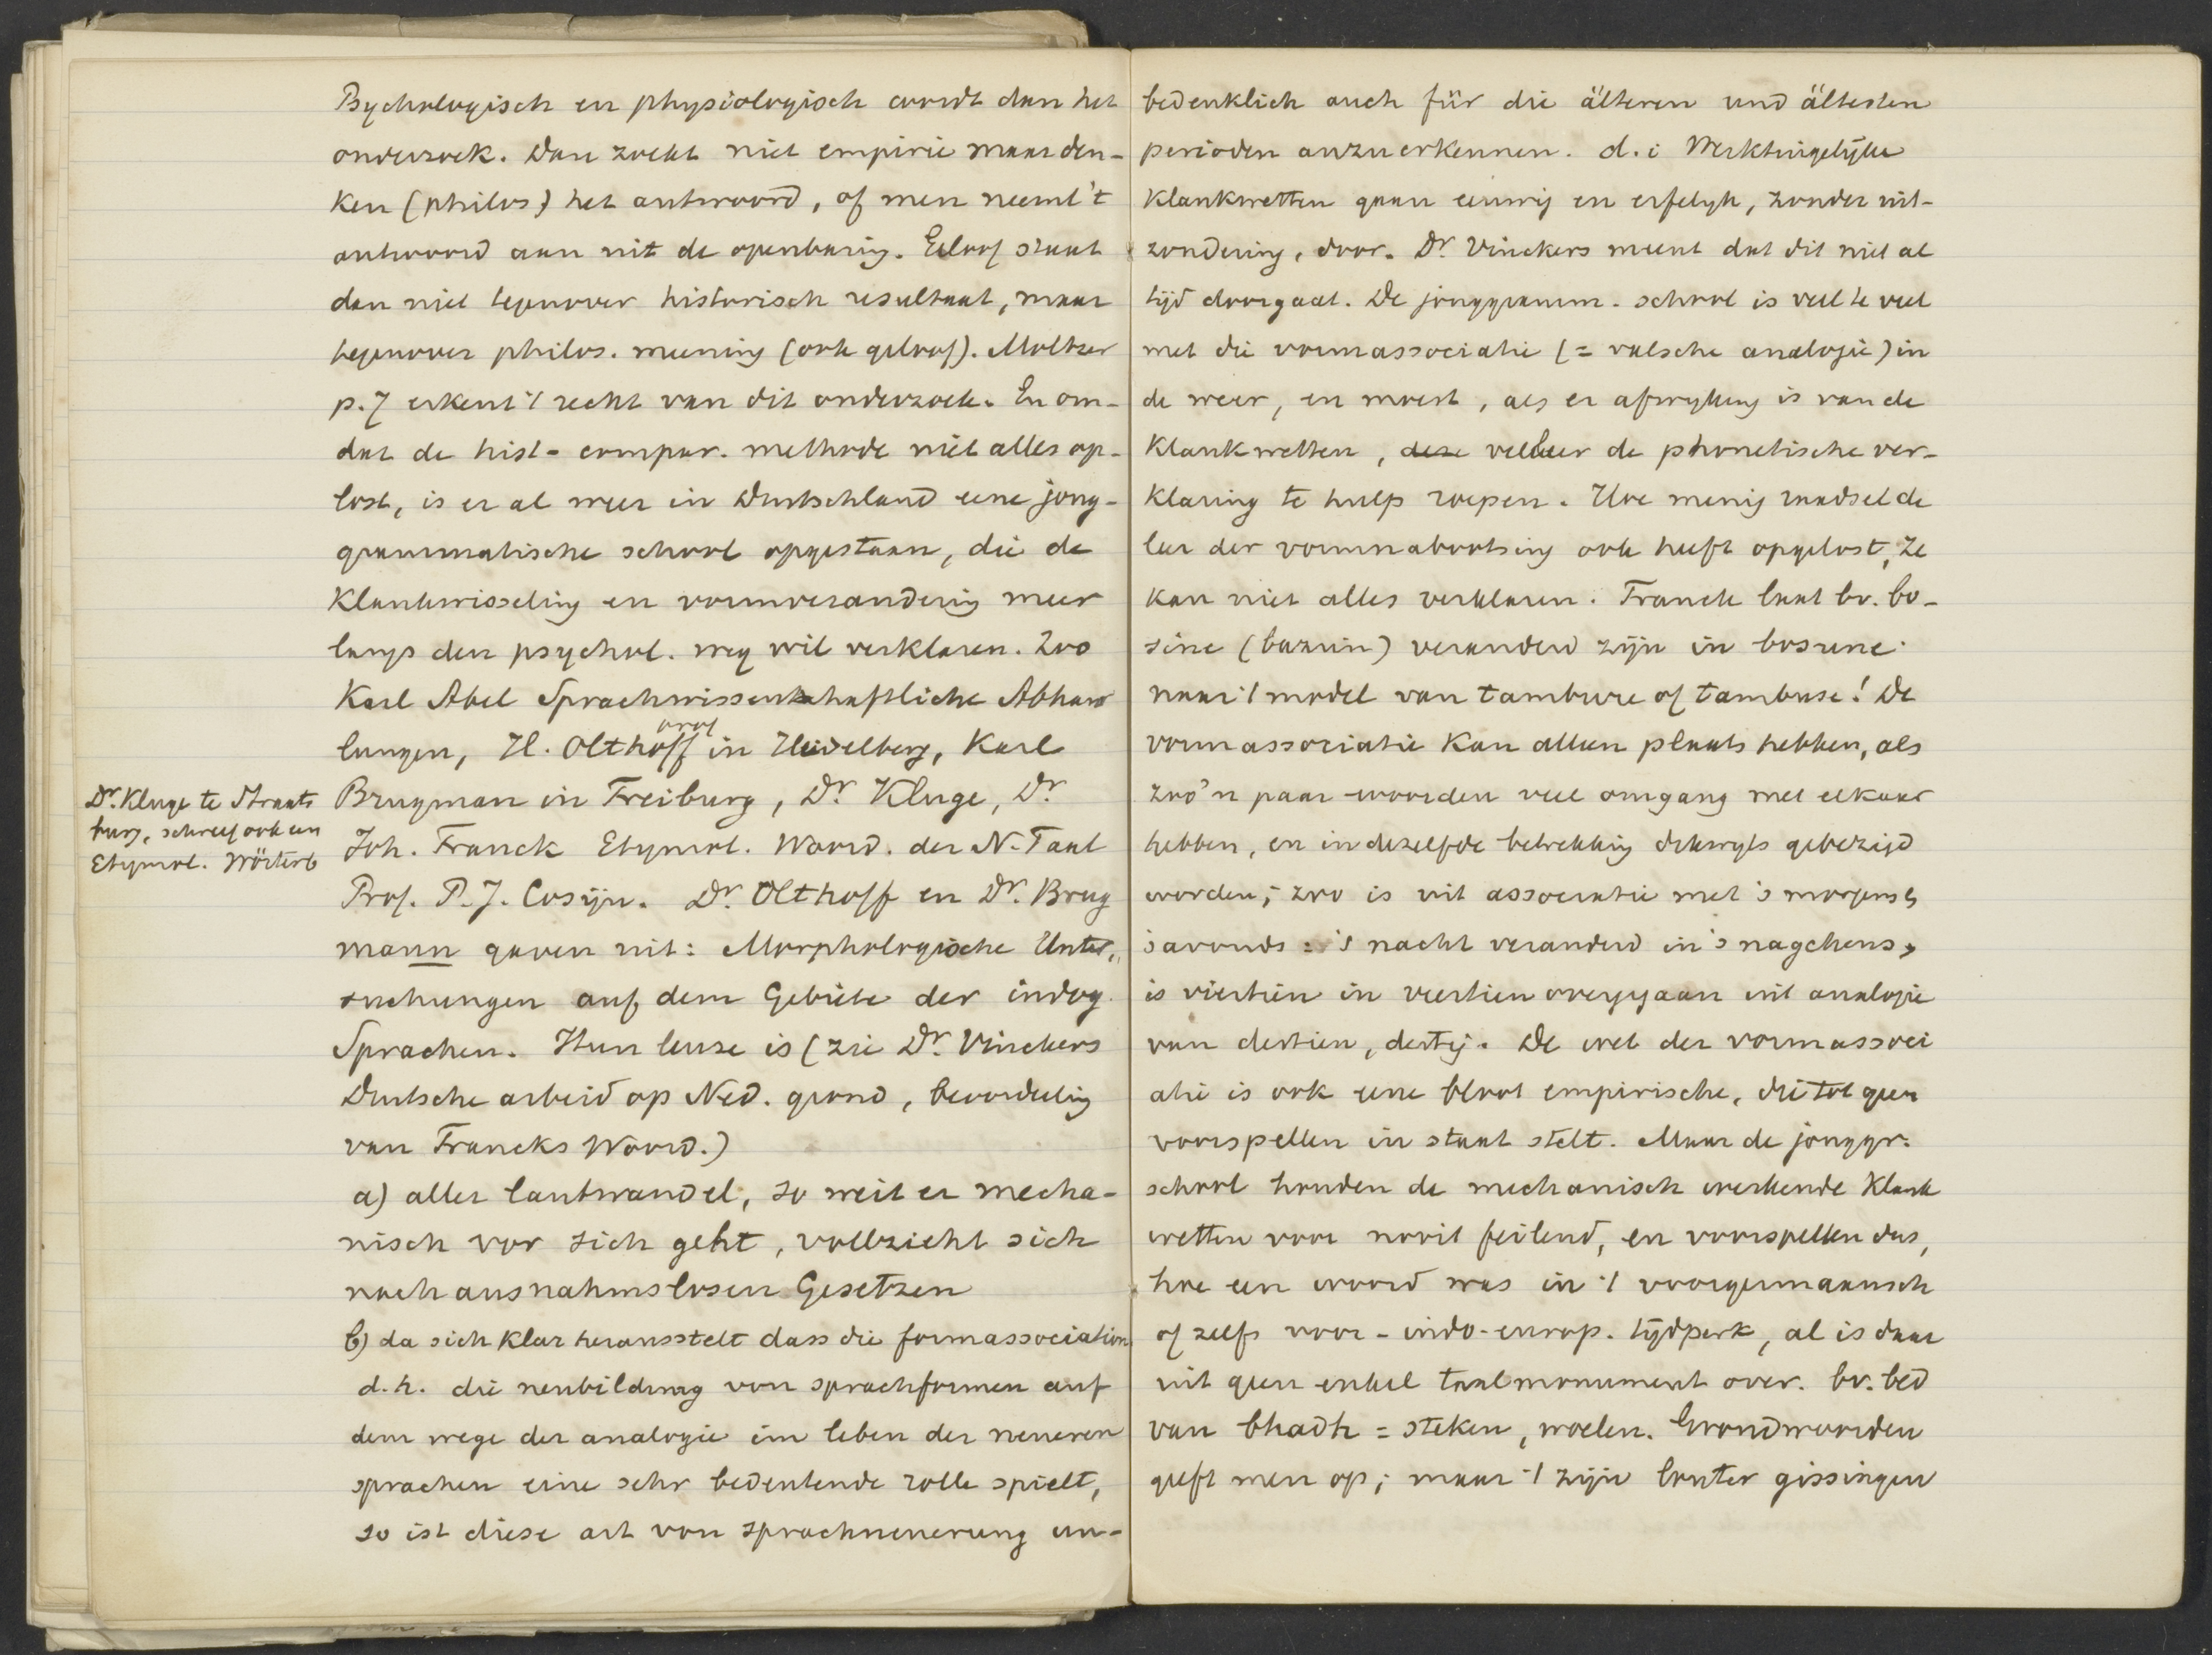 Psychologisch en physiologisch wordt dan het
onderzoek. Dan zoekt niet empirie maar den-
ken (philos) het antwoord, of men neemt 't
antwoord aan uit de openbaring. Geloof staat
dan niet tegenover historisch resultaat, maar
tegenover philos. meening (ook geloof). Moltzer
p. 7 erkent 't recht van dit onderzoek. En om-
dat de hist-compar. methode niet alles op-
lost, is er al weer in Duitschland eene jong-
grammatische school opgestaan, die de
Klankwisseling en vormverandering meer
langs den psychol. weg wil verklaren. Zoo
Karl Abel Sprachwissenschaftliche Abhand
lungen, H. Olthoff prof in Heidelberg, Karl
Brugman in Freiburg, Dr. Kluge, Dr.
Dr. Kluge te Straats
burg, schreef ook een
Etymol. Wörterb
Joh. Franck Etymol. Woord. der N. Taal
Prof. P. J. Cosijn. Dr. Olthoff en Dr. Brug
mann gaven uit: Morphologische Unter,,
suchungen auf dem Gebiete der indog.
Sprachen. Hun leuze is (zie Dr. Vinckers
Duitsche arbeid op Ned. grond, beoordeeling
van Francks Woord.)
a) aller lautwandel, so weit er mecha-
nisch vor sich geht, vollzieht sich
nach ausnahmslosen Gesetzen
b) da sich klar herausstelt dass die formassociation
d.h. die neubildung von sprachformen auf
dem wege der analogie im leben der neueren
sprachen eine sehr bedeutende rolle spielt,
so ist diese art von sprachneuerung un-
bedenklich auch für die älteren und ältesten
perioden anzuerkennen. d.i Werktuigelijke
Klankwetten gaan eeuwig en erfelijk, zonder uit-
zondering, door. Dr. Vinckers meent dat dit niet al
tijd doorgaat. De jonggramm. school is veel te veel
met die vormassociatie (= valsche analogie) in
de weer, en moest, als er afwijking is van de
Klankwetten, deze veeleer de phonetische ver-
klaring te hulp roepen. Hoe menig raadsel de
leer der vormnabootsing ook heeft opgelost, ze
kan niet alles verklaren. Franck laat bv. bo-
sine (bazuin) veranderd zijn in bosune
naar 't model van tambure of tambuse! De
vormassociatie kan alleen plaats hebben, als
zoo'n paar woorden veel omgang met elkaar
hebben, en in dezelfde betrekking dikwijls gebezigd
worden; zoo is uit associatie met 's morgens,
's avonds : 's nacht veranderd in 's nagchens,
is viertien in veertien overgegaan uit analogie
van dertien, dertig. De wet der vormassoci
atie is ook eene bloot empirische, die tot geen
voorspellen in staat stelt. Maar de jonggr.
school houden de mechanisch werkende Klank
wetten voor nooit feilend, en voorspellen dus,
hoe een woord was in 't voorgermaansch
of zelfs voor-indo-europ. tijdperk, al is daar
uit geen enkel taalmonument over. bv. bed
van bhadh = steken, woelen. Grondwoorden
geeft men op; maar 't zijn louter gissingen